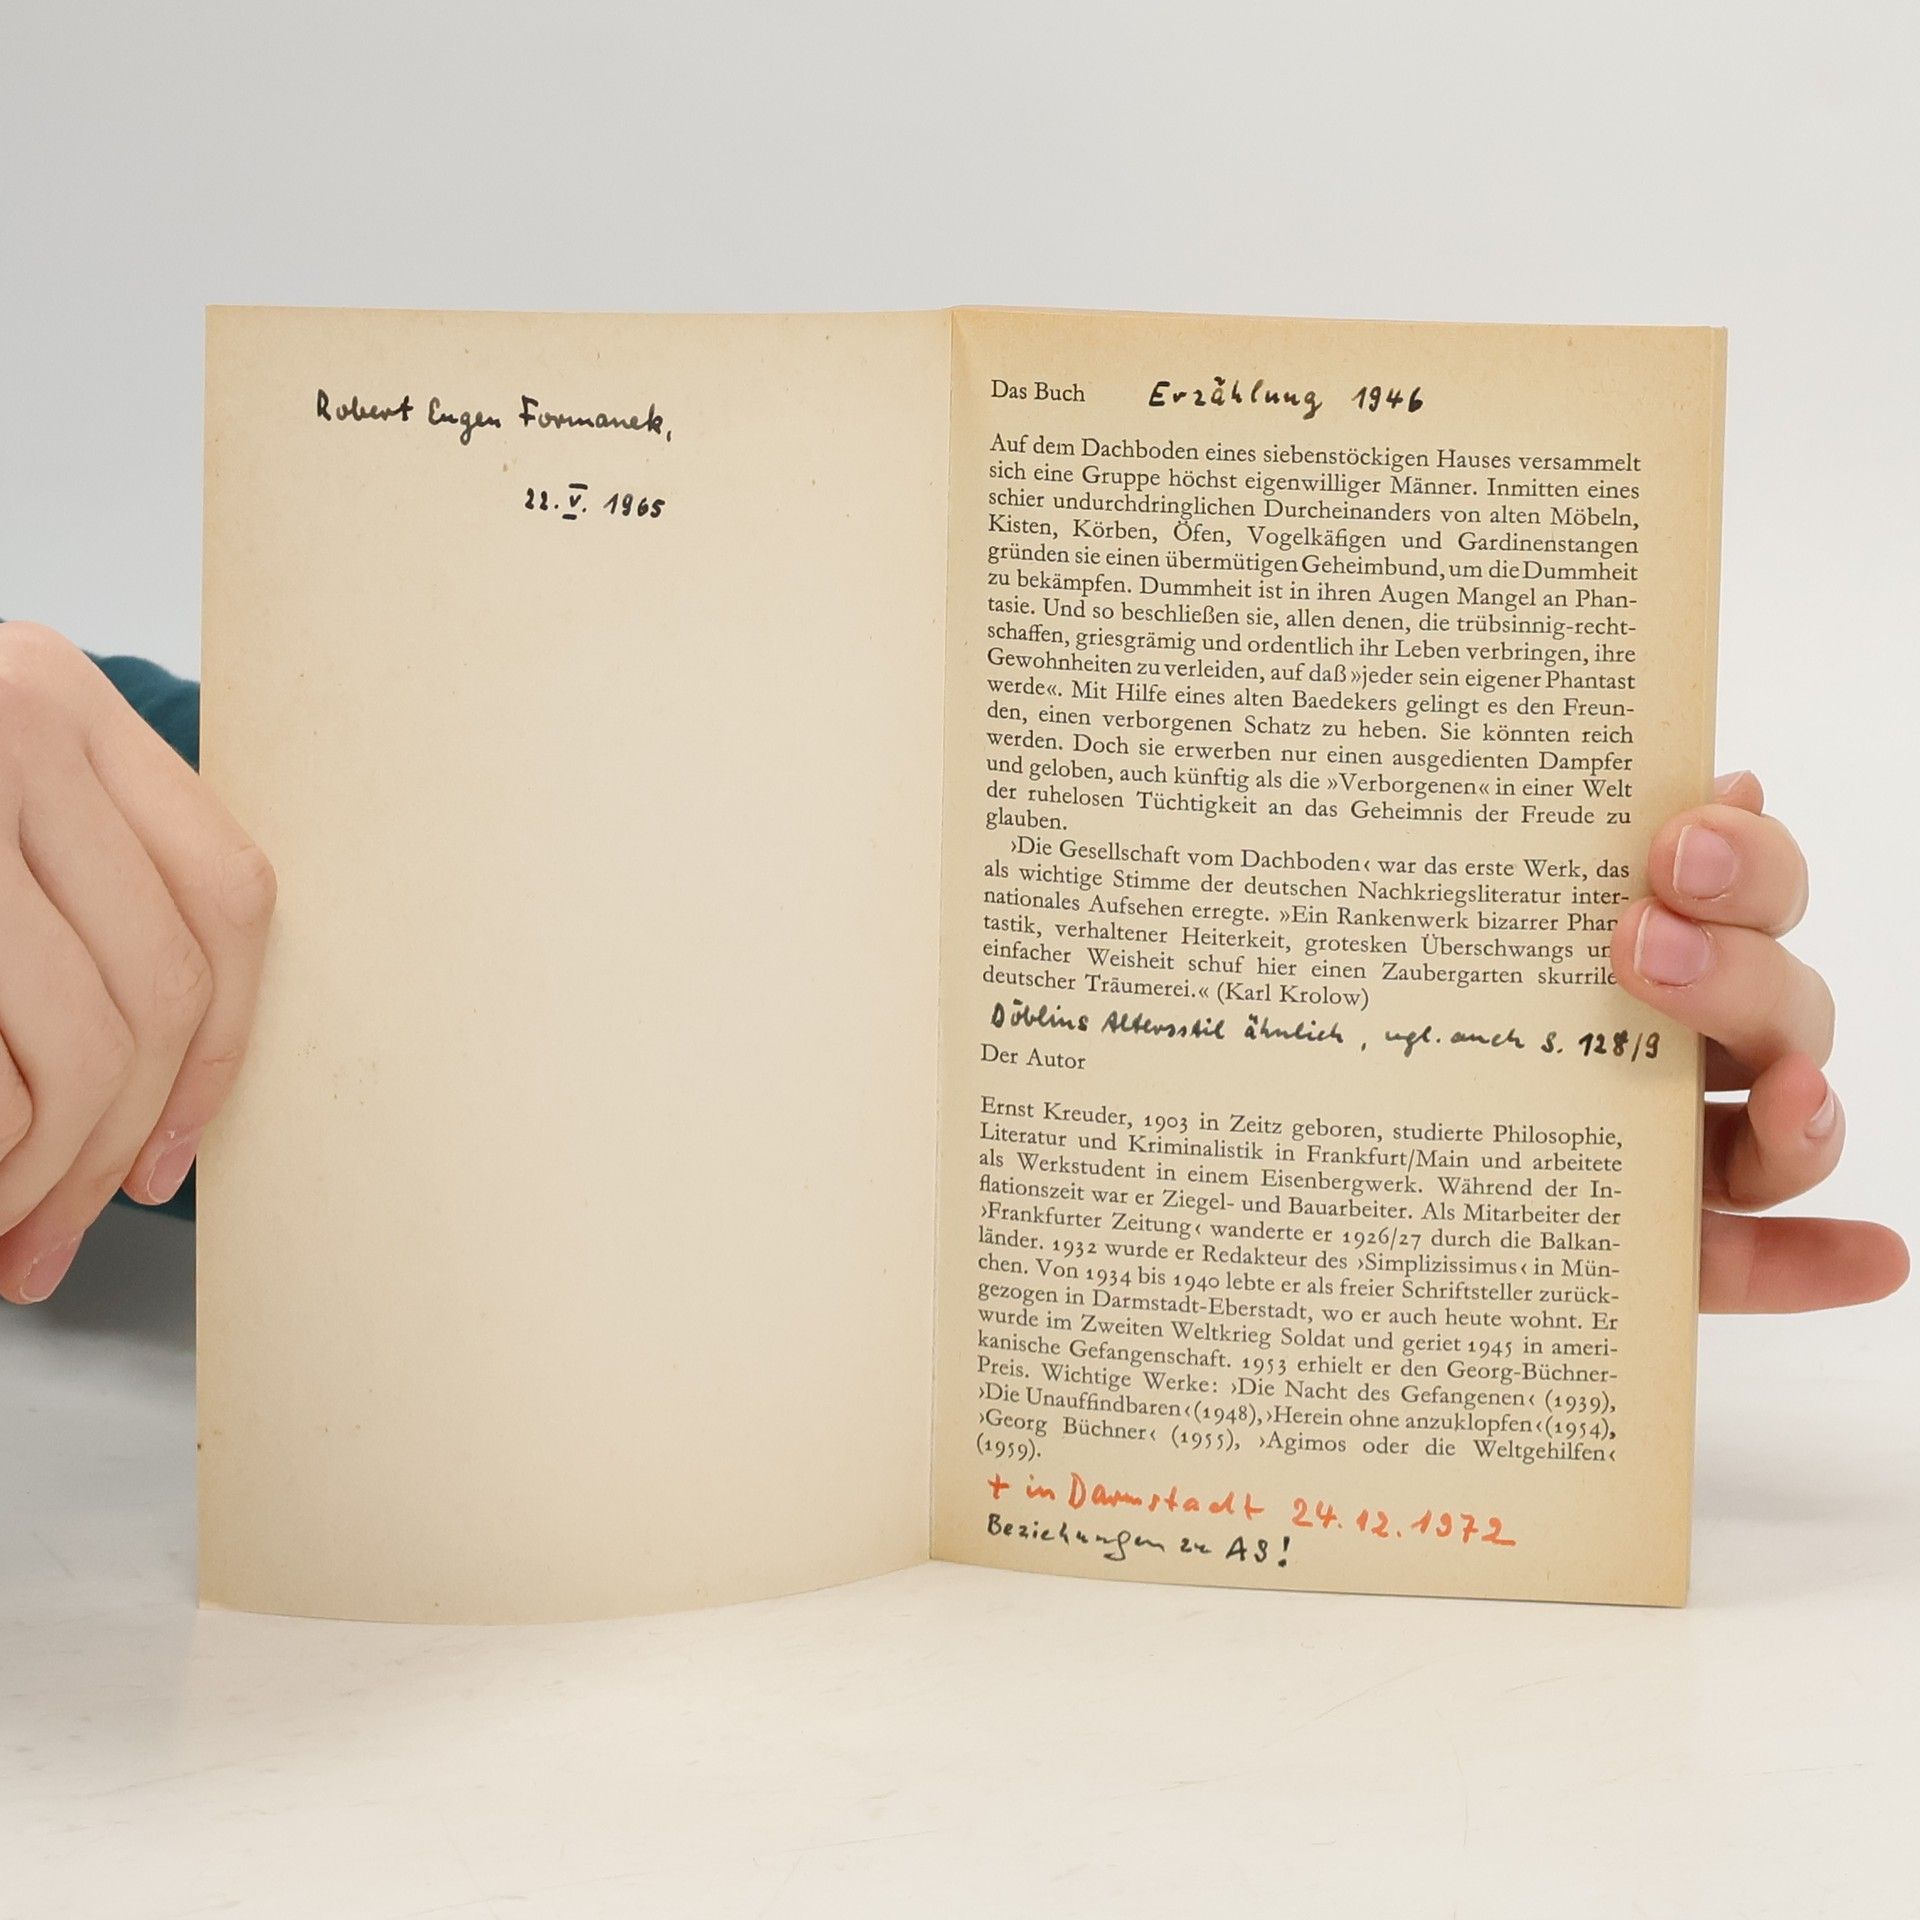 Robert Eugen Formanek,
22. V. 1965
Das Buch Erzählung 1946
Auf dem Dachboden eines siebenstöckigen Hauses versammelt
sich eine Gruppe höchst eigenwilliger Männer. Inmitten eines
schier undurchdringlichen Durcheinanders von alten Möbeln,
Kisten, Körben, Öfen, Vogelkäfigen und Gardinenstangen
gründen sie einen übermütigen Geheimbund, um die Dummheit
zu bekämpfen. Dummheit ist in ihren Augen Mangel an Phan-
tasie. Und so beschließen sie, allen denen, die trübsinnig-recht-
schaffen, griesgrämig und ordentlich ihr Leben verbringen, ihre
Gewohnheiten zu verleiden, auf daß »jeder sein eigener Phantast
werde«. Mit Hilfe eines alten Baedekers gelingt es den Freun-
den, einen verborgenen Schatz zu heben. Sie könnten reich
werden. Doch sie erwerben nur einen ausgedienten Dampfer
und geloben, auch künftig als die »Verborgenen« in einer Welt
der ruhelosen Tüchtigkeit an das Geheimnis der Freude zu
glauben.
›Die Gesellschaft vom Dachboden‹ war das erste Werk, das
als wichtige Stimme der deutschen Nachkriegsliteratur inter-
nationales Aufsehen erregte. »Ein Rankenwerk bizarrer Phan
tastik, verhaltener Heiterkeit, grotesken Überschwangs un
einfacher Weisheit schuf hier einen Zaubergarten skurrile
deutscher Träumerei.« (Karl Krolow)
Döblins Altersstil ähnlich, vgl. auch S. 128/9
Der Autor
Ernst Kreuder, 1903 in Zeitz geboren, studierte Philosophie,
Literatur und Kriminalistik in Frankfurt/Main und arbeitete
als Werkstudent in einem Eisenbergwerk. Während der In-
flationszeit war er Ziegel- und Bauarbeiter. Als Mitarbeiter der
›Frankfurter Zeitung‹ wanderte er 1926/27 durch die Balkan-
länder. 1932 wurde er Redakteur des ›Simplizissimus‹ in Mün-
chen. Von 1934 bis 1940 lebte er als freier Schriftsteller zurück-
gezogen in Darmstadt-Eberstadt, wo er auch heute wohnt. Er
wurde im Zweiten Weltkrieg Soldat und geriet 1945 in ameri-
kanische Gefangenschaft. 1953 erhielt er den Georg-Büchner-
Preis. Wichtige Werke: ›Die Nacht des Gefangenen‹ (1939),
›Die Unauffindbaren‹ (1948), ›Herein ohne anzuklopfen‹ (1954),
›Georg Büchner‹ (1955), ›Agimos oder die Weltgehilfen‹
(1959).
+ in Darmstadt 24.12.1972
Beziehungen zu AS!